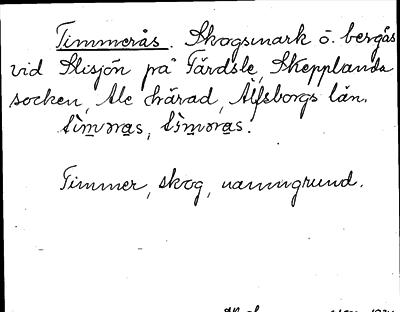 Timmerås. Skogsmark o. bergås
vid Slisjön på Färdsle, Skepplanda
socken, Ale härad, Älfsborgs län.
Timmer, skog, namngrund.